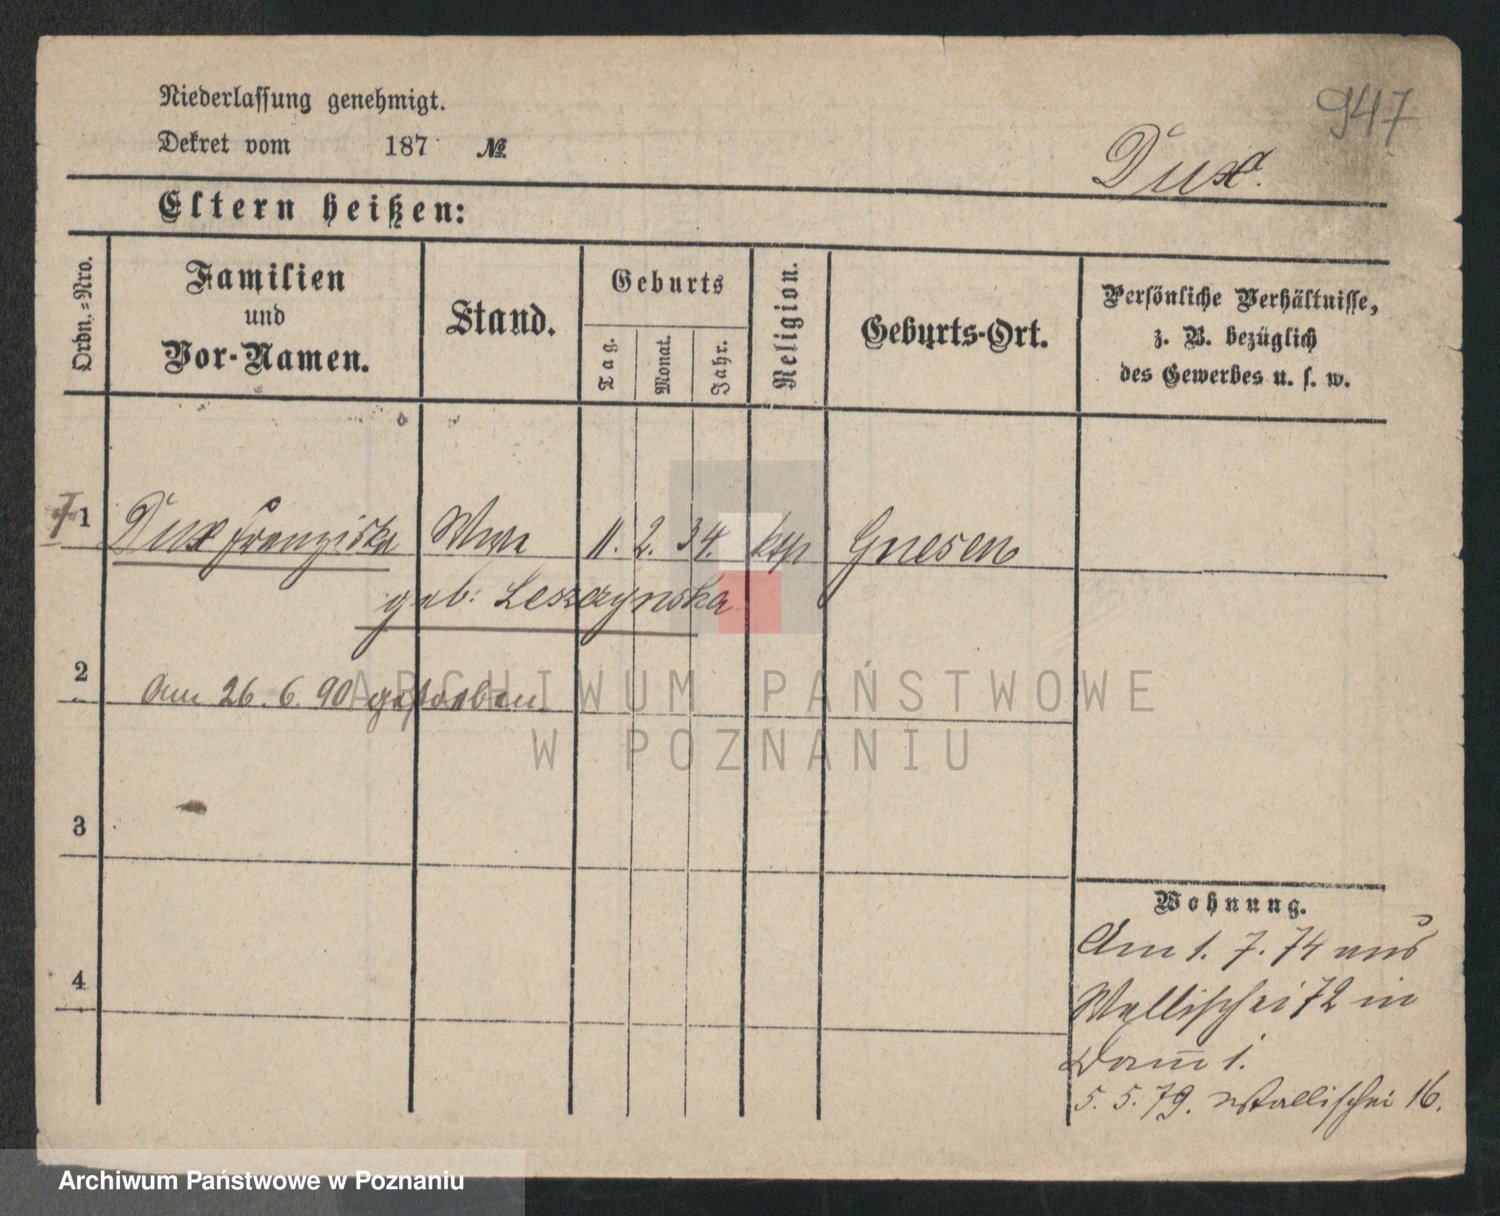 947
Niederlassung genehmigt.
Dekret vom 187 №
Dux.
Eltern heißen:
Ordn.=Nro.
Familien
und
Vor-Namen.
Stand.
Geburts
Tag.
Monat.
Jahr.
Religion.
Geburts-Ort.
Persönliche Verhältnisse,
z. B. bezüglich
des Gewerbes u. s. w.
1 Dux Franziska Wwe 11. 2. 34. ktp Gnesen
geb: Leszczynska
2 Am 26. 6. 90 gestorben
3
4
Wohnung.
Am 1. 7. 74 aus
Wallischei 72 in
Dom 1.
5. 5. 79. Wallischei 16.
ARCHIWUM PAŃSTWOWE
W POZNANIU
Archiwum Państwowe w Poznaniu